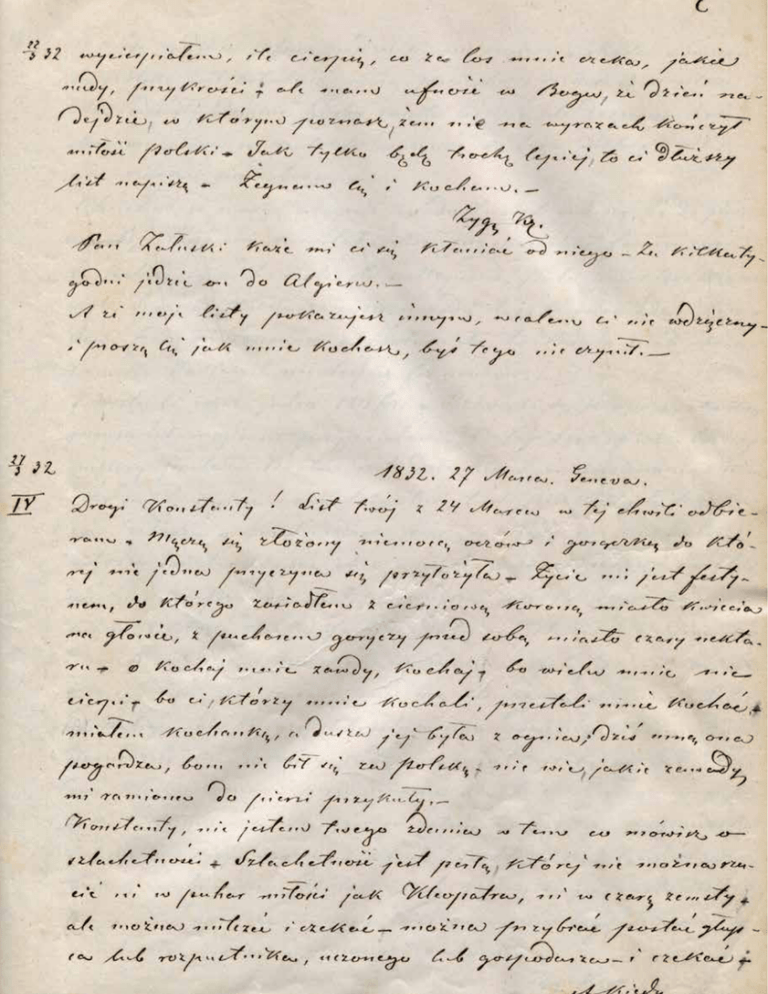 22/3 32 wycierpiałem, ile cierpię, co za los mnie czeka, jakie
nudy, przykrości; ale mam ufność w Bogu, że dzień na-
dejdzie, w którym poznasz, żem nie na wyrazach kończył
miłość Polski. Jak tylko będę trochę lepiej, to ci dłuższy
list napiszę. Żegnam cię i kocham.—
Zyg. Kr.
Pan Załuski każe mi ci się kłaniać od niego — Za kilka ty-
godni jedzie on do Algieru.—
A że moje listy pokazujesz innym, wcalem ci nie wdzięczny
i proszę cię jak mnie kochasz, byś tego nie czynił.—
27/3 32
1832. 27 Marca. Geneva.
IV Drogi Konstanty! List twój z 24 Marca w tej chwili odbie-
ram. Męczę się złożony niemocą oczów i gorączką do któ-
rej nie jedna przyczyna się przyłożyła. Życie mi jest festy-
nem, do którego zasiadłem z cierniową koroną miasto kwiecia
na głowie, z pucharem goryczy przed sobą miasto czary nekta-
ru — o kochaj mnie zawdy, kochaj, bo wielu mnie nie
cierpi, bo ci, którzy mnie kochali, przestali mnie kochać,
miałem kochankę, a dusza jej była z ognia; dziś mną ona
pogardza, bom nie bił się za Polskę, nie wie, jakie zawady
mi ramiona do piersi przykuły.—
Konstanty, nie jestem twego zdania w tem co mówisz o
szlachetności. Szlachetność jest perłą, której nie można rzu-
cić ni w puhar miłości jak Kleopatra, ni w czarę zemsty,
ale można milczeć i czekać — można przybrać postać głup-
ca lub rozpustnika, uczonego lub gospodarza — i czekać;
A kiedy